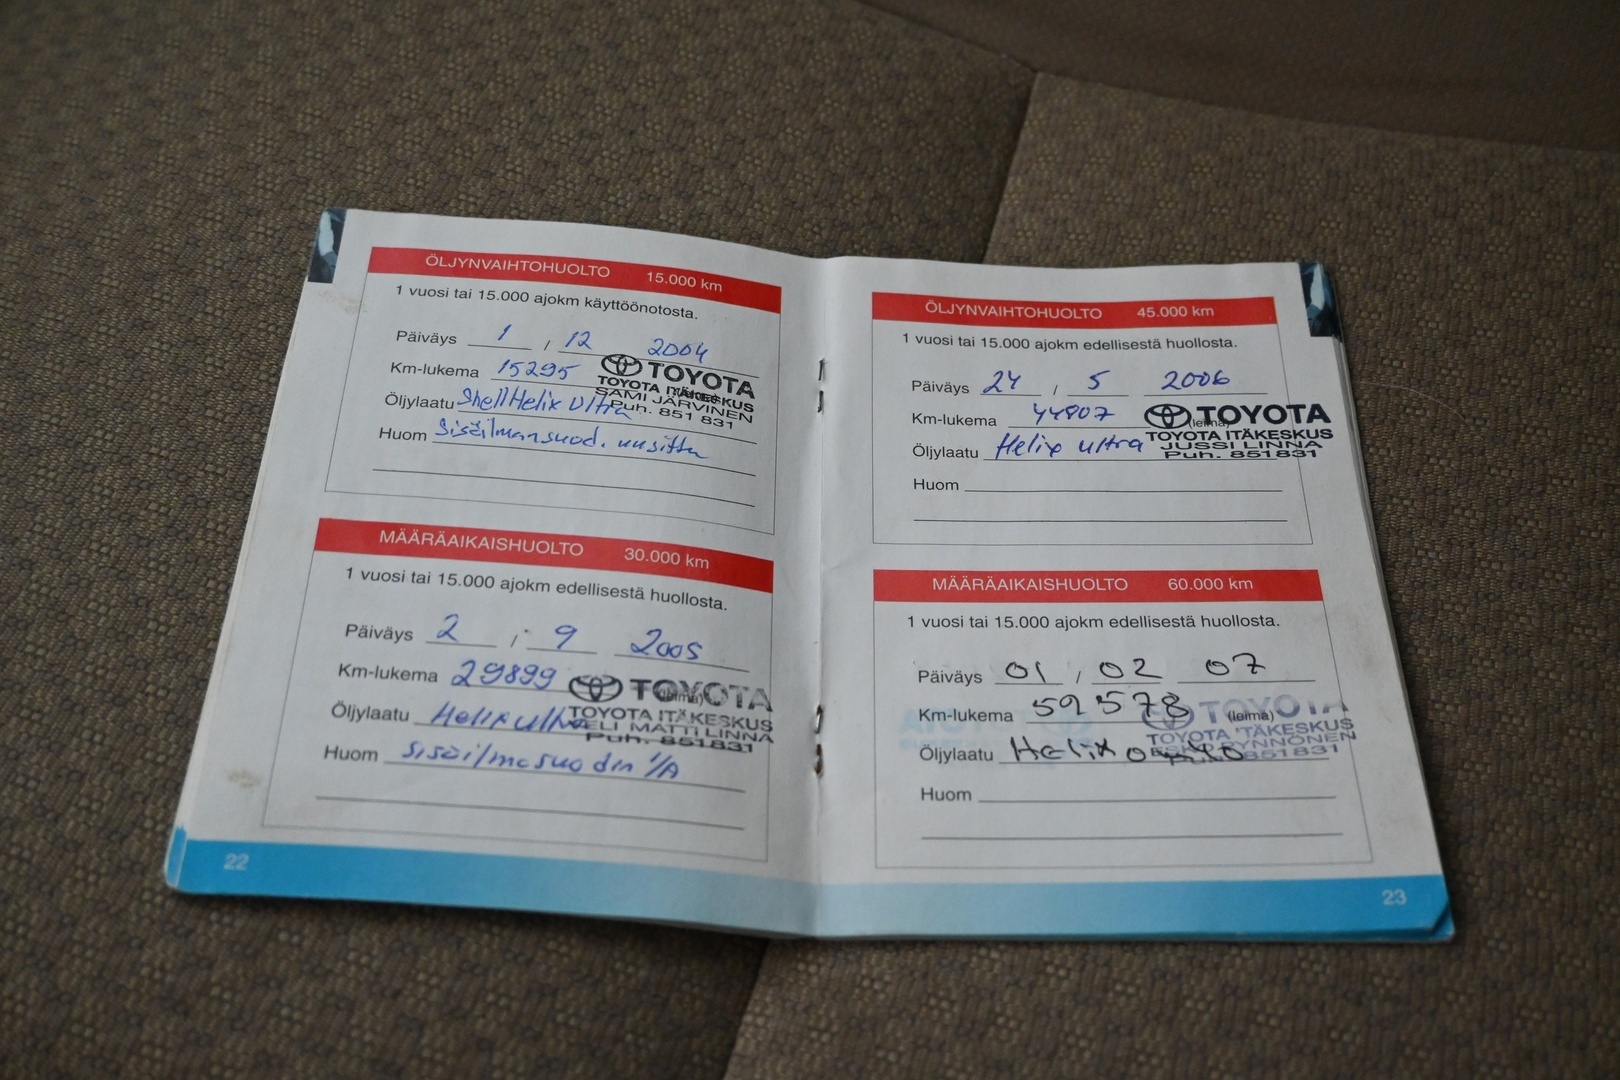 ÖLJYNVAIHTOHUOLTO 15.000 km
1 vuosi tai 15.000 ajokm käyttöönotosta.
Päiväys 1 / 12 2004
Km-lukema 15295
Öljylaatu Shell Helix Ultra
Huom Sisäilmansuod. uusittu
TOYOTA
TOYOTA ITÄKESKUS
SAMI JÄRVINEN
Puh. 851 831
MÄÄRÄAIKAISHUOLTO 30.000 km
1 vuosi tai 15.000 ajokm edellisestä huollosta.
Päiväys 2 / 9 2005
Km-lukema 29899
Öljylaatu Helix ultra
Huom
(leima)
TOYOTA
TOYOTA ITÄKESKUS
VELI MATTI LINNA
Puh. 851831
22
ÖLJYNVAIHTOHUOLTO 45.000 km
1 vuosi tai 15.000 ajokm edellisestä huollosta.
Päiväys 24 / 5 2006
Km-lukema 44807
Öljylaatu Helix ultra
(leima)
TOYOTA
TOYOTA ITÄKESKUS
JUSSI LINNA
Puh. 851831
Huom
MÄÄRÄAIKAISHUOLTO 60.000 km
1 vuosi tai 15.000 ajokm edellisestä huollosta.
Päiväys 01 / 02 07
Km-lukema 59578
(leima)
Öljylaatu Helix
TOYOTA
TOYOTA ITÄKESKUS
851831
Huom
23